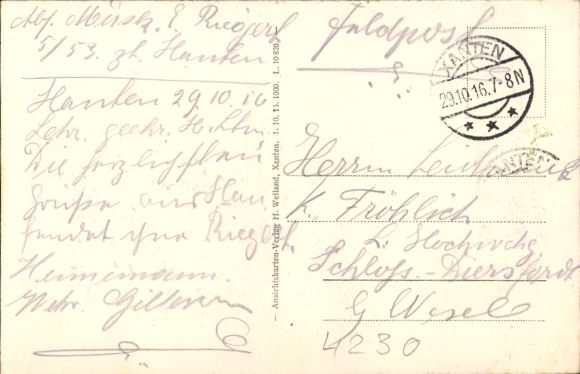 Abs. Musk. E Riegert
5/53. zt. Xanten
Feldpost
XANTEN
29.10.16.7-8N
Xanten 29.10.16
Sehr geehr. H. Ltn.
Die herzlichsten
Grüße aus Xan
sendet Ihr Riegert.
Heinemann.
— Ansichtskarten-Verlag H. Welland, Xanten. 1. 10. 15. 1000. L. 10820
XANTEN
Herrn Leutnant
K. Fröhlich
Schloss-Diersfordt
b/ Wesel
4230